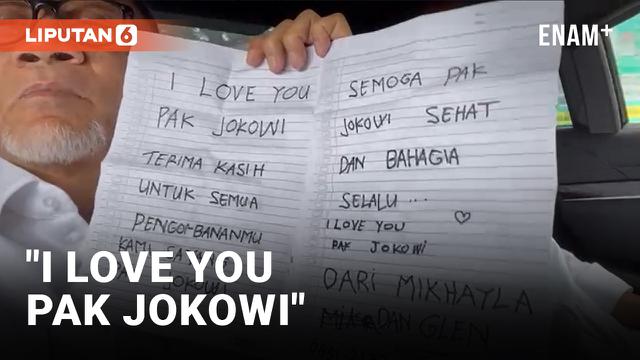 LIPUTAN 6
ENAM+
I LOVE YOU
PAK JOKOWI
TERIMA KASIH
UNTUK SEMUA
PENGORBANANMU
KAMI
JOKOWI
SEMOGA PAK
JOKOWI SEHAT
DAN BAHAGIA
SELALU ...
I LOVE YOU
PAK JOKOWI
DARI MIKHAYLA
DAN GLEN
"I LOVE YOU
PAK JOKOWI"